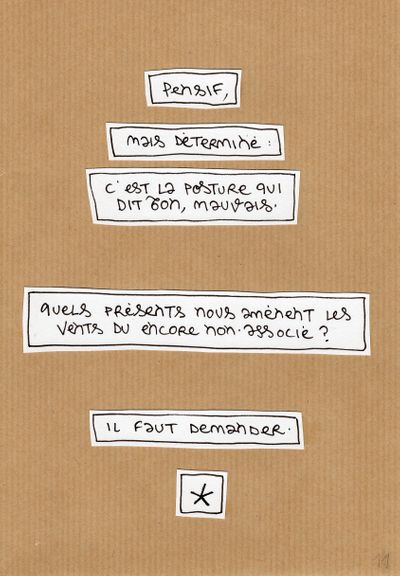 Pensif,
mais déterminé :
c'est la posture qui
dit bon, mauvais.
Quels présents nous amènent les
vents du encore non-associé ?
Il faut demander.
*